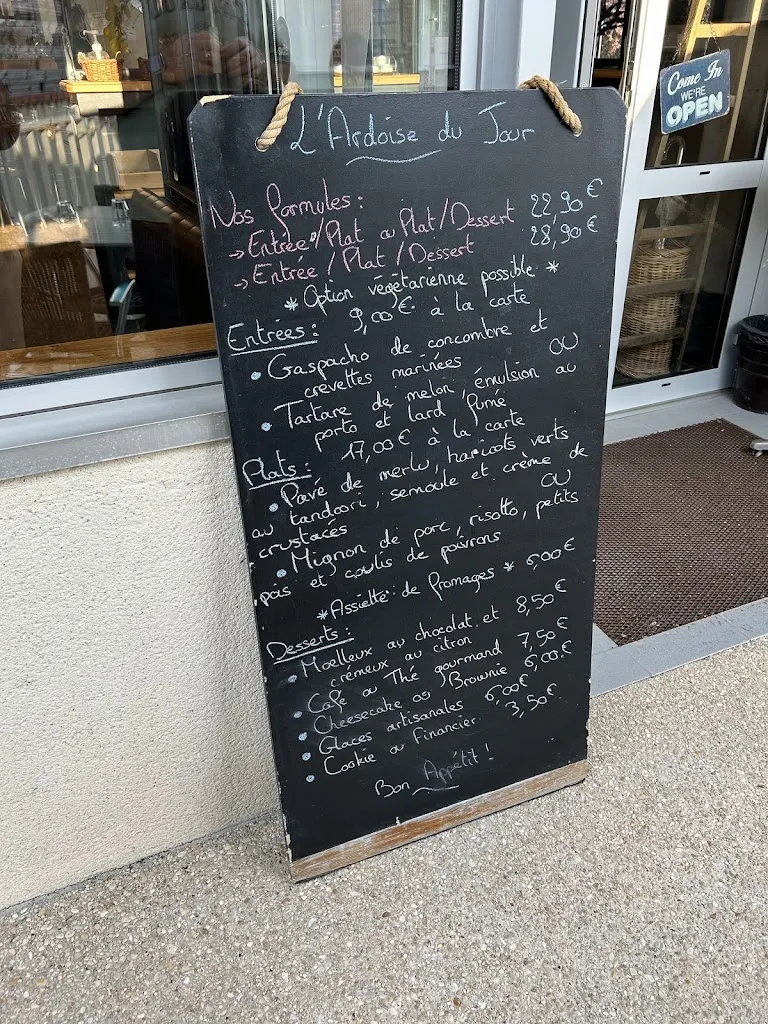 L'Ardoise du Jour
Come In
WE'RE
OPEN
Nos formules :
→ Entrée/Plat ou Plat/Dessert 22,90€
→ Entrée / Plat / Dessert 28,90€
* Option végétarienne possible *
Entrées : 9,00€ à la carte
• Gaspacho de concombre et
crevettes marinées OU
• Tartare de melon, émulsion au
porto et lard fumé
Plats : 17,00€ à la carte
• Pavé de merlu, haricots verts
au tandoori, semoule et crème de
crustacés OU
• Mignon de porc, risotto, petits
pois et coulis de poivrons
* Assiette de fromages * 6,00€
Desserts :
• Moelleux au chocolat et 8,50€
crémeux au citron
• Café ou Thé gourmand 7,50€
• Cheesecake ou Brownie 6,00€
• Glaces artisanales 6,00€
• Cookie ou Financier 3,50€
Bon Appétit !